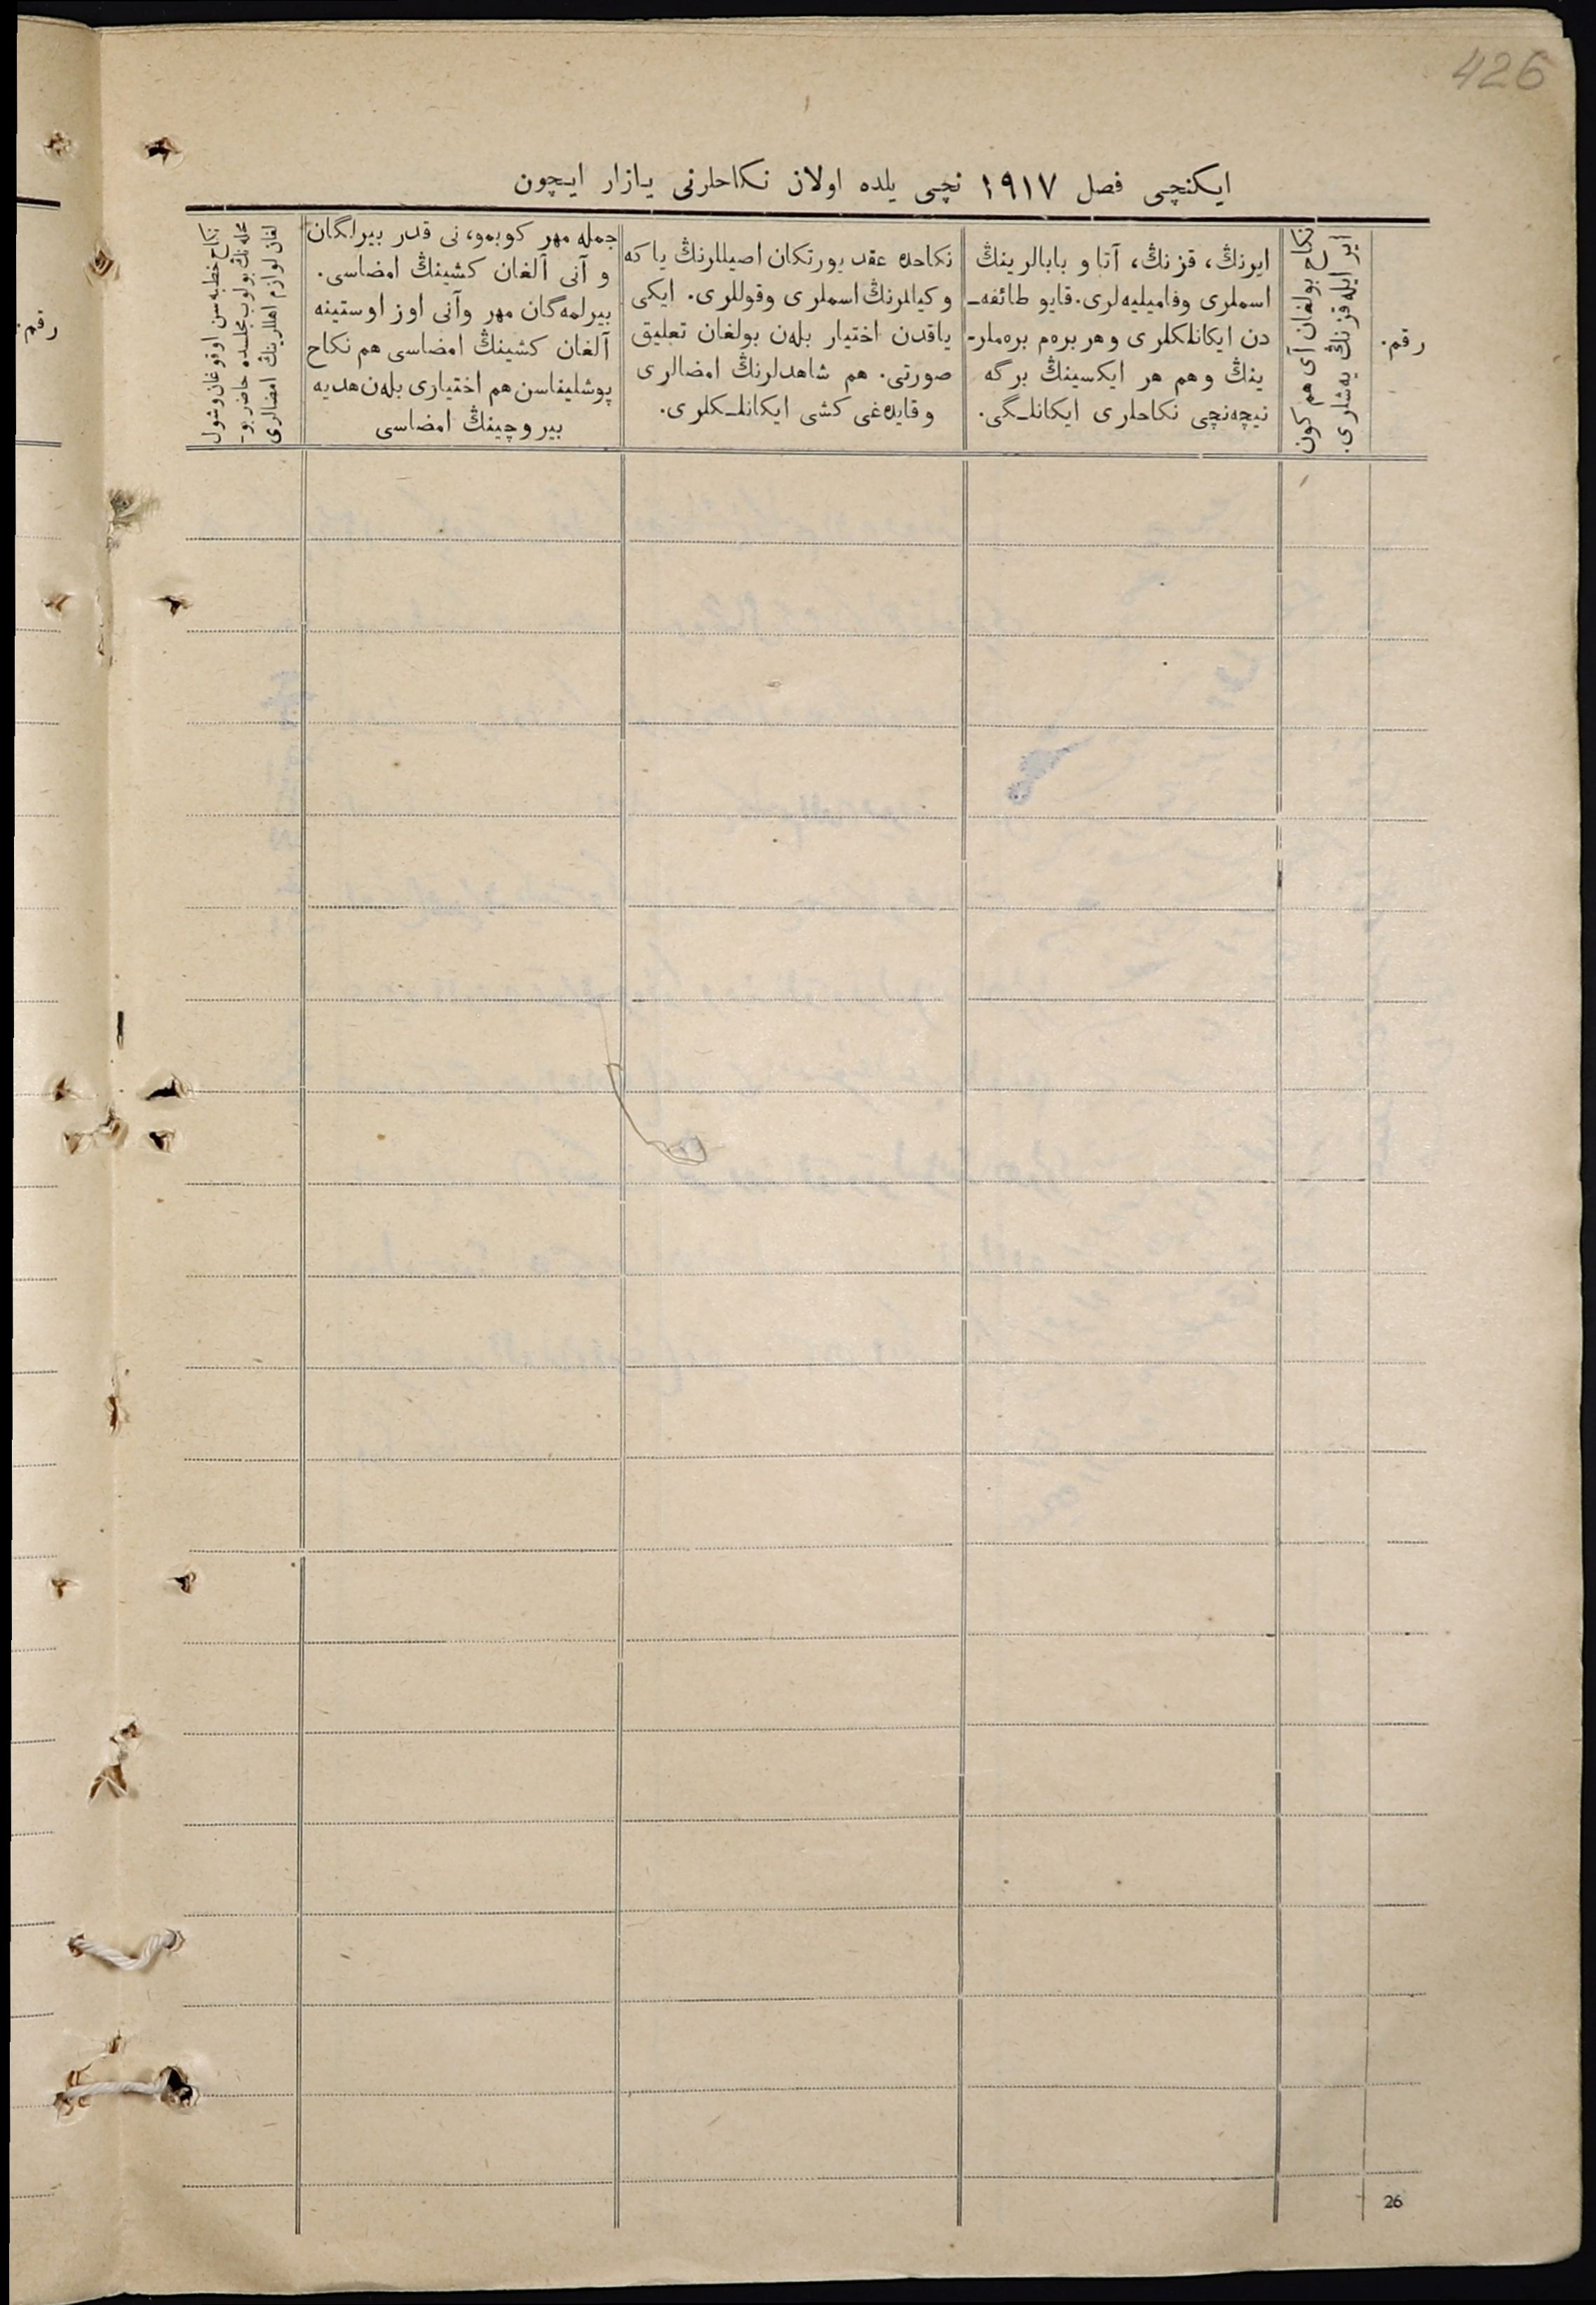 426
ایکنچی فصل ۱۹۱۷ نچی یلده اولان نکاحلرنی یازار ایچون
رقم.
ایر ایله قزنڭ یەشلری.
نکاح بولغان آی هم کون
ایرنڭ، قزنڭ، آتا و بابالرینڭ
اسملری وفامیلیه‌لری. قایو طائفه‌ـ
دن ایکانلکلری و هر بره‌م بره‌ملر-
ینڭ و هم هر ایکسینڭ برگه
نیچه‌نچی نکاحلری ایکانلـگی.
نکاحده عقد یورتکان اصیللرنڭ یا که
وکیللرنڭ اسملری وقوللری. ایکی
یاقدن اختیار بله‌ن بولغان تعلیق
صورتی. هم شاهدلرنڭ امضالری
و قایده‌غی کشی ایکانلـکلری.
جمله مهر کوبمو، نی قدر بیرلگان
و آنی آلغان کشینڭ امضاسی.
بیرلمه‌گان مهر وآنی اوز اوستینه
آلغان کشینڭ امضاسی هم نکاح
پوشلیناسن هم اختیاری بله‌ن هدیه
بیروچینڭ امضاسی
نکاح خطبه‌سن اوقوغان وشول
محله‌نڭ بولوب مجلسده حاضر بو-
لغان لوازم اهللرینڭ امضالری
رقم.
26